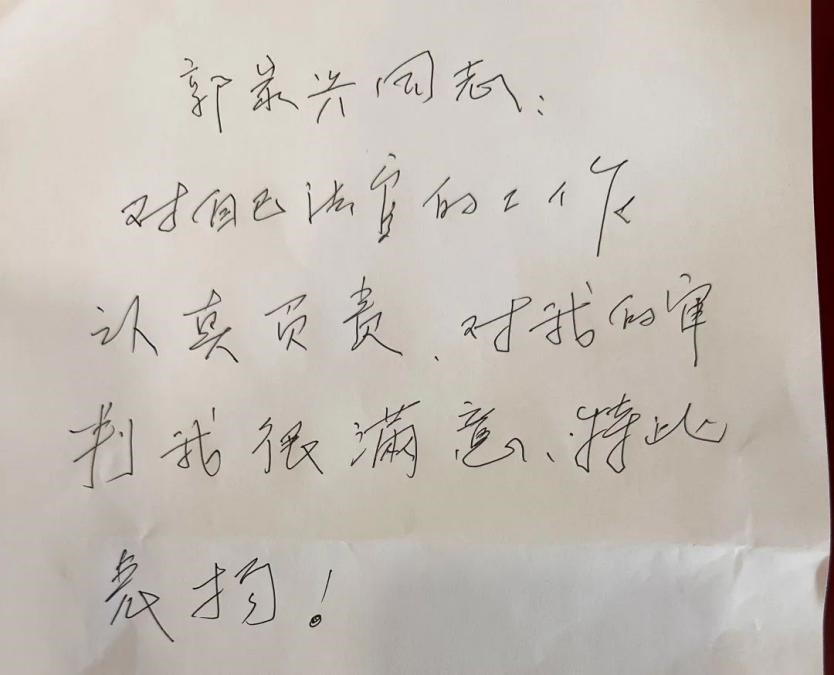 郭家兴同志:
对自己法官的工作
认真负责、对我的审
判我很满意、特此
表扬!